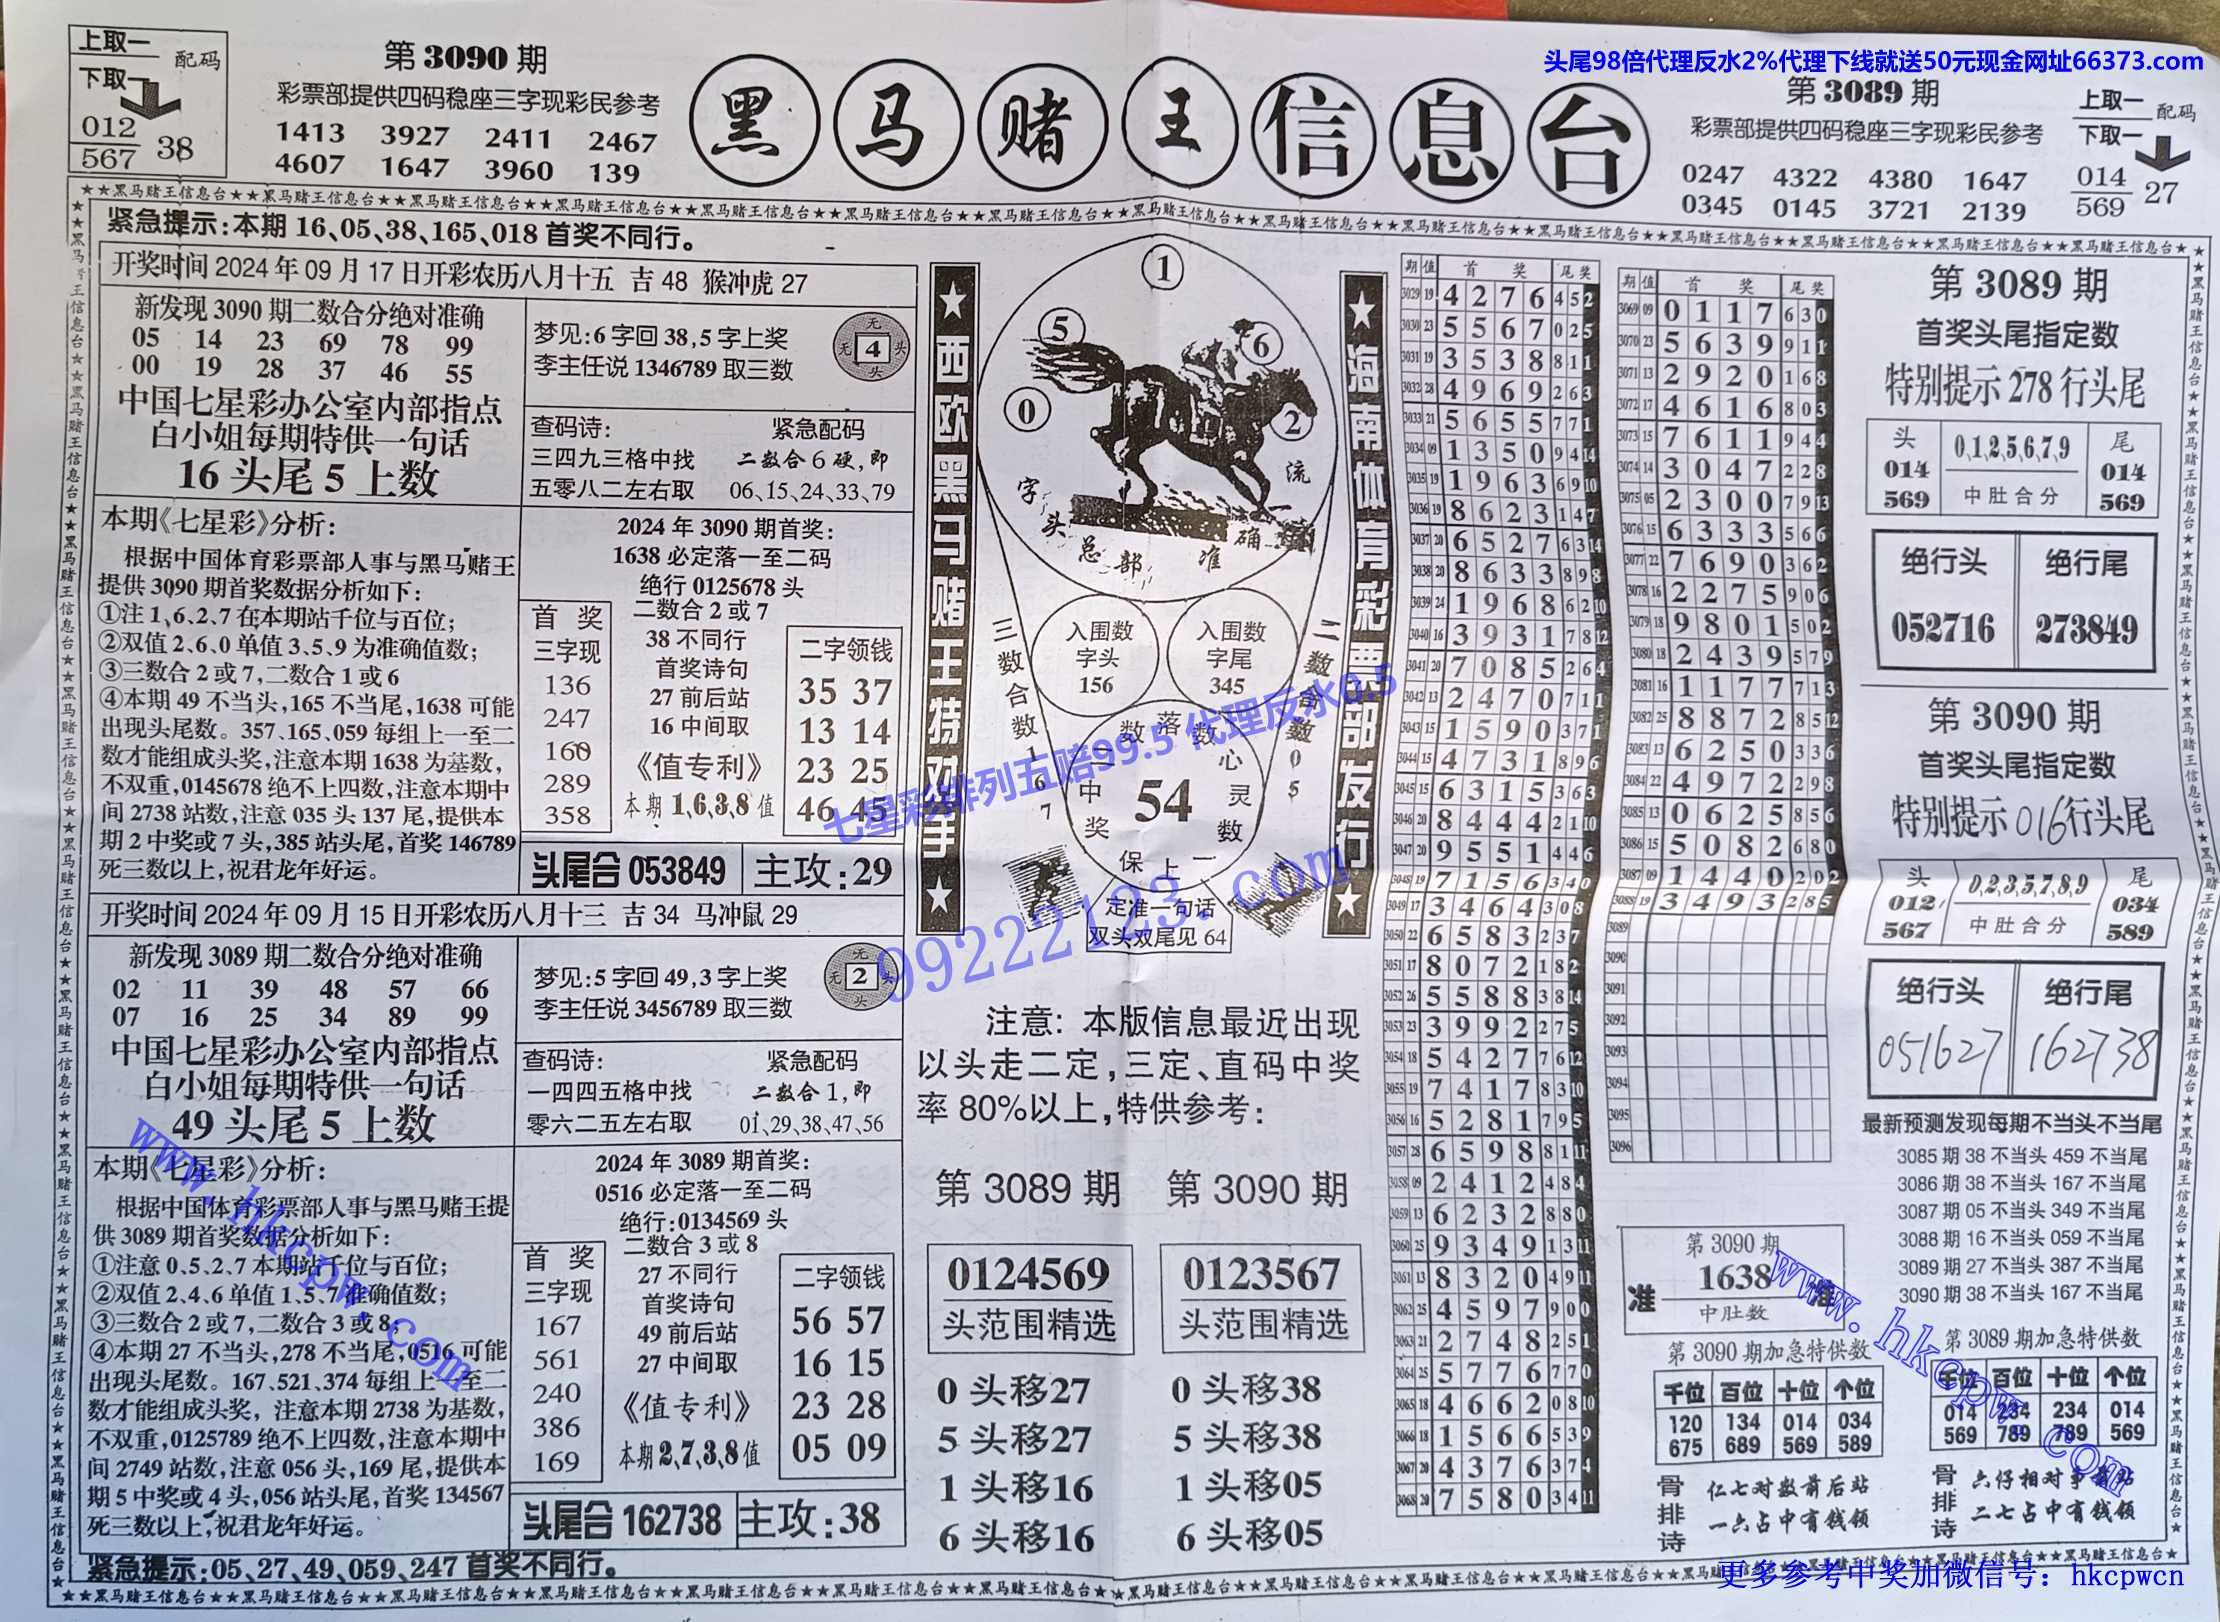 上取一
配码
下取一
012
567
38
第 3090 期
彩票部提供四码稳座三字现彩民参考
1413 3927 2411 2467
4607 1647 3960 139
黑马赌王信息台
头尾98倍代理反水2%代理下线就送50元现金网址66373.com
第 3089 期
彩票部提供四码稳座三字现彩民参考
0247 4322 4380 1647
0345 0145 3721 2139
上取一
配码
下取一
014
569
27
紧急提示:本期 16、05、38、165、018 首奖不同行。
开奖时间 2024 年 09 月 17 日开彩农历八月十五 吉 48 猴冲虎 27
新发现 3090 期二数合分绝对准确
05 14 23 69 78 99
00 19 28 37 46 55
中国七星彩办公室内部指点
白小姐每期特供一句话
16 头尾 5 上数
梦见:6 字回 38,5 字上奖
李主任说 1346789 取三数
无
无 4 头
头
查码诗: 紧急配码
三四九三格中找 二数合 6 硬,即
五零八二左右取 06、15、24、33、79
本期《七星彩》分析:
根据中国体育彩票部人事与黑马赌王
提供 3090 期首奖数据分析如下:
①注 1,6,2,7 在本期站千位与百位;
②双值 2、6、0 单值 3、5、9 为准确值数;
③三数合 2 或 7,二数合 1 或 6
④本期 49 不当头,165 不当尾,1638 可能
出现头尾数。357、165、059 每组上一至二
数才能组成头奖,注意本期 1638 为基数,
不双重,0145678 绝不上四数,注意本期中
间 2738 站数,注意 035 头 137 尾,提供本
期 2 中奖或 7 头,385 站头尾,首奖 146789
死三数以上,祝君龙年好运。
2024 年 3090 期首奖:
1638 必定落一至二码
绝行 0125678 头
二数合 2 或 7
首 奖
三字现
136
247
160
289
358
38 不同行
首奖诗句
27 前后站
16 中间取
《值专利》
本期 1,6,3,8 值
二字领钱
35 37
13 14
23 25
46 45
头尾合 053849
主攻:29
开奖时间 2024 年 09 月 15 日开彩农历八月十三 吉 34 马冲鼠 29
新发现 3089 期二数合分绝对准确
02 11 39 48 57 66
07 16 25 34 89 99
中国七星彩办公室内部指点
白小姐每期特供一句话
49 头尾 5 上数
梦见:5 字回 49,3 字上奖
李主任说 3456789 取三数
无
无 2 头
头
查码诗: 紧急配码
一四四五格中找 二数合 1,即
零六二五左右取 01、29、38、47、56
本期《七星彩》分析:
根据中国体育彩票部人事与黑马赌王提
供 3089 期首奖数据分析如下:
①注意 0、5、2、7 本期站千位与百位;
②双值 2、4、6 单值 1、5、7 准确值数;
③三数合 2 或 7,二数合 3 或 8;
④本期 27 不当头,278 不当尾,0516 可能
出现头尾数。167、521、374 每组上一至二
数才能组成头奖, 注意本期 2738 为基数,
不双重,0125789 绝不上四数,注意本期中
间 2749 站数,注意 056 头,169 尾,提供本
期 5 中奖或 4 头,056 站头尾,首奖 134567
死三数以上,祝君龙年好运。
2024 年 3089 期首奖:
0516 必定落一至二码
绝行:0134569 头
二数合 3 或 8
首 奖
三字现
167
561
240
386
169
27 不同行
首奖诗句
49 前后站
27 中间取
《值专利》
本期 2,7,3,8 值
二字领钱
56 57
16 15
23 28
05 09
头尾合 162738
主攻:38
紧急提示:05、27、49、059、247 首奖不同行。
★西欧黑马赌王特对手★
★海南体育彩票部友行★
①
⑤ ⑥
⓪ ②
字头总部准确一流
入围数
字头
156
入围数
字尾
345
三数合数167
二数合数05
54
定准一句话
双头双尾见 64
注意: 本版信息最近出现
以头走二定,三定、直码中奖
率 80%以上,特供参考:
第 3089 期 第 3090 期
0124569 0123567
头范围精选 头范围精选
0 头移27 0 头移38
5 头移27 5 头移38
1 头移16 1 头移05
6 头移16 6 头移05
期 值 首 奖 尾 奖
3029 19 4 2 7 6 4 5 2
3030 23 5 5 6 7 0 2 5
3031 19 3 5 3 8 8 1 1
3032 28 4 9 6 9 2 6 3
3033 21 5 6 5 5 7 7 1
3034 09 1 3 5 0 9 4 14
3035 19 1 9 6 3 6 9 10
3036 19 8 6 2 3 1 4 7
3037 20 6 5 2 7 6 3 14
3038 20 8 6 3 3 8 9 8
3039 24 1 9 6 8 6 2 10
3040 16 3 9 3 1 7 8 12
3041 20 7 0 8 5 2 6 4
3042 13 2 4 7 0 7 1 1
3043 15 1 5 9 0 3 7 1
3044 15 4 7 3 1 8 9 6
3045 15 6 3 1 5 3 6 3
3046 20 8 4 4 4 2 1 10
3047 20 9 5 5 1 4 4 6
3048 19 7 1 5 6 3 4 0
3049 17 3 4 6 4 3 0 8
3050 22 6 5 8 3 2 3 7
3051 17 8 0 7 2 1 8 2
3052 26 5 5 8 8 3 8 14
3053 23 3 9 9 2 2 7 5
3054 18 5 4 2 7 7 6 12
3055 19 7 4 1 7 8 3 10
3056 16 5 2 8 1 7 9 5
3057 28 6 5 9 8 8 1 11
3058 09 2 4 1 2 4 8 4
3059 13 6 2 3 2 8 8 0
3060 25 9 3 4 9 1 3 11
3061 13 8 3 2 0 4 9 11
3062 25 4 5 9 7 9 0 0
3063 21 2 7 4 8 2 5 1
3064 25 5 7 7 6 7 7 0
3065 18 4 6 6 2 0 8 10
3066 18 1 5 6 6 5 3 9
3067 20 4 3 7 6 3 7 4
3068 20 7 5 8 0 3 4 11
期 值 首 奖 尾 奖
3069 09 0 1 1 7 6 3 0
3070 23 5 6 3 9 9 1 1
3071 13 2 9 2 0 1 6 8
3072 17 4 6 1 6 8 0 3
3073 15 7 6 1 1 9 4 4
3074 14 3 0 4 7 2 2 8
3075 05 2 3 0 0 7 9 13
3076 15 6 3 3 3 5 6 6
3077 22 7 6 9 0 3 6 2
3078 16 2 2 7 5 9 0 6
3079 18 9 8 0 1 5 0 2
3080 18 2 4 3 9 5 7 9
3081 16 1 1 7 7 7 1 3
3082 25 8 8 7 2 8 5 12
3083 13 6 2 5 0 3 3 6
3084 22 4 9 7 2 2 9 8
3085 13 0 6 2 5 8 5 6
3086 15 5 0 8 2 6 8 0
3087 09 1 4 4 0 2 0 2
3088 19 3 4 9 3 2 8 5
3089
3090
3091
3092
3093
3094
3095
3096
第 3090 期
准 1638 准
中肚数
第 3090 期加急特供数
千位 百位 十位 个位
120 134 014 034
675 689 569 589
骨排诗
仁七对数前后站
一六占中有钱领
第 3089 期
首奖头尾指定数
特别提示 278 行头尾
头 0,1,2,5,6,7,9 尾
014 014
569 中肚合分 569
绝行头 绝行尾
052716 273849
第 3090 期
首奖头尾指定数
特别提示 016 行头尾
头 0,2,3,5,7,8,9 尾
012 034
567 中肚合分 589
绝行头 绝行尾
051627 162738
最新预测发现每期不当头不当尾
3085 期 38 不当头 459 不当尾
3086 期 38 不当头 167 不当尾
3087 期 05 不当头 349 不当尾
3088 期 16 不当头 059 不当尾
3089 期 27 不当头 387 不当尾
3090 期 38 不当头 167 不当尾
第 3089 期加急特供数
千位 百位 十位 个位
014 234 234 014
569 789 789 569
骨排诗
二七占中有钱领
七星彩排列五赔99.5 代理反水0.5
99222123.com
www.hkcpw.com
www.hkcpw.com
更多参考中奖加微信号：hkcpwcn